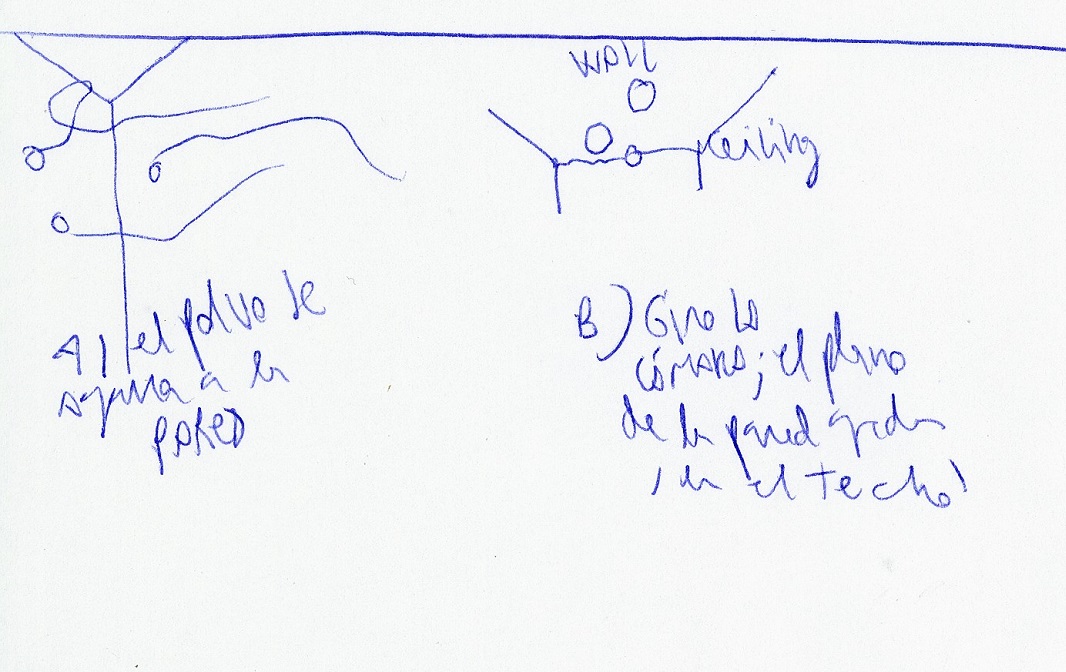 WALL
ceiling
A) el polvo se
agarra a la
PARED
B) Gira la
CÁMARA; el plano
de la pared queda
¡en el techo!